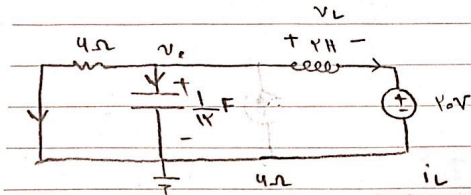 v_L
4Ω v_c + ۲H −
+
۱/۱۲ F
± ۲۰V
−
4Ω i_L